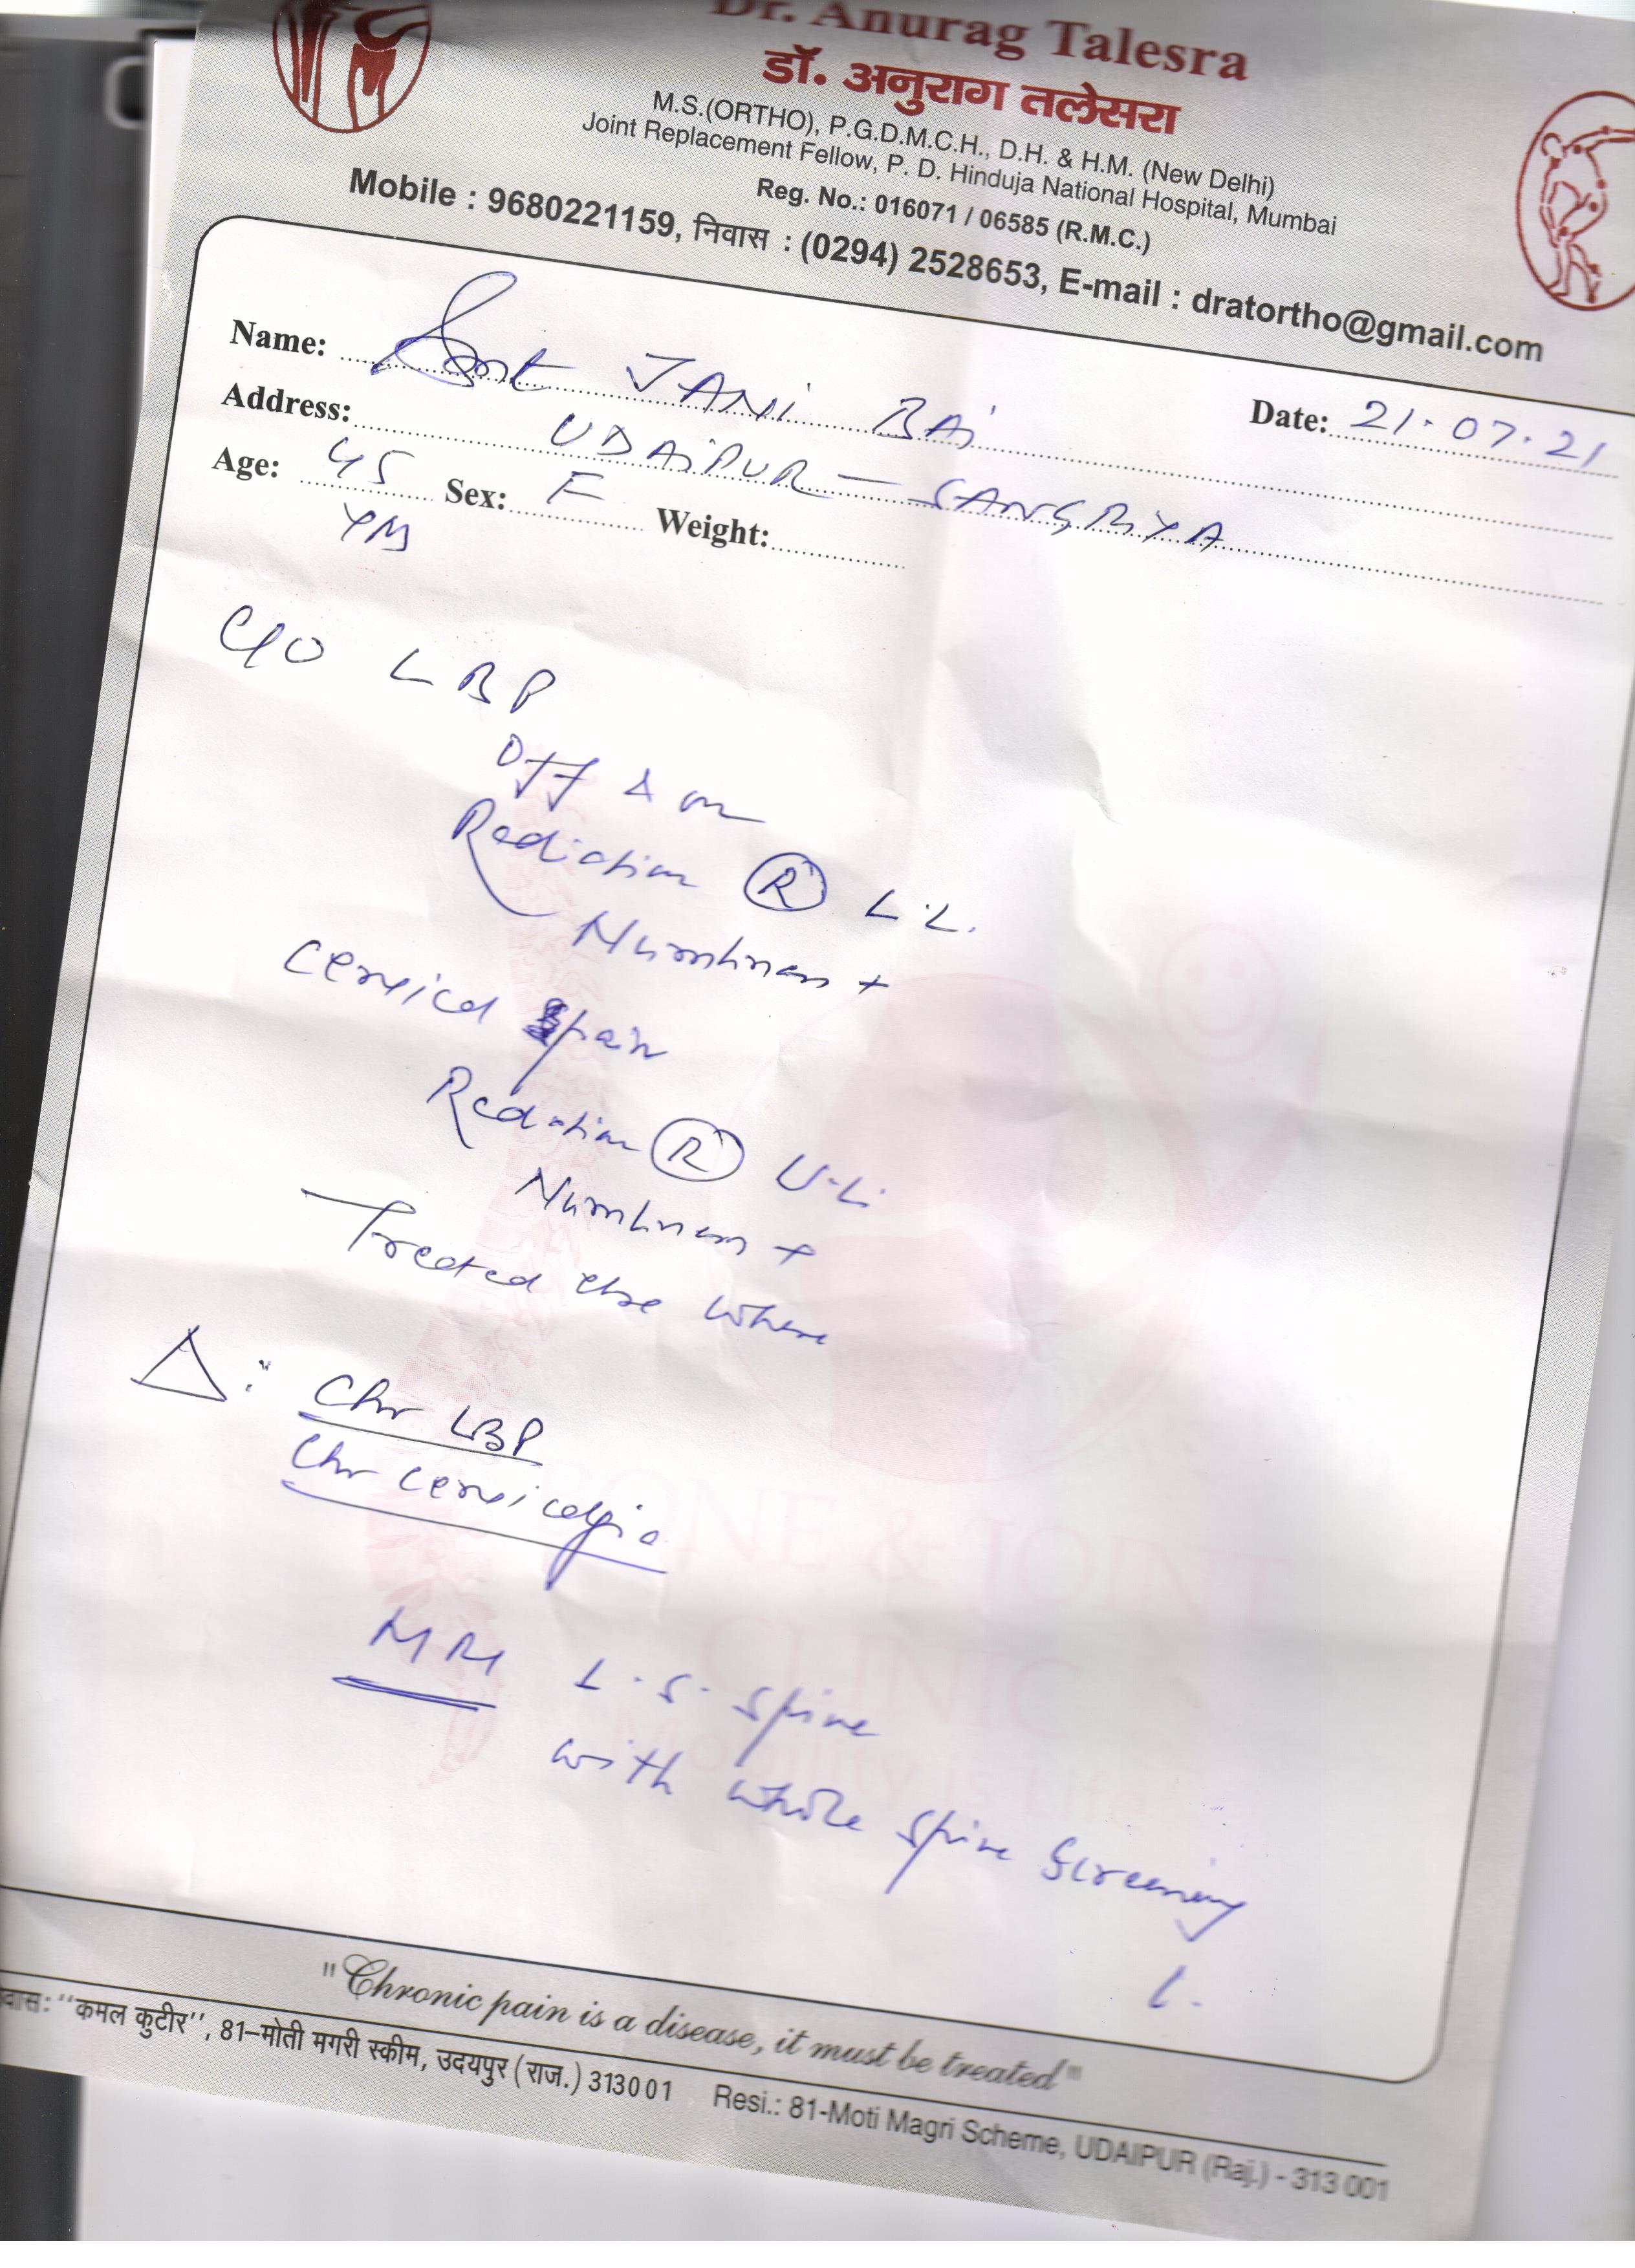 Dr. Anurag Talesra
डॉ. अनुराग तलेसरा
M.S.(ORTHO), P.G.D.M.C.H., D.H. & H.M. (New Delhi)
Joint Replacement Fellow, P. D. Hinduja National Hospital, Mumbai
Reg. No.: 016071 / 06585 (R.M.C.)
Mobile : 9680221159, निवास : (0294) 2528653, E-mail : dratortho@gmail.com
Name: Smt JANI BAi Date: 21.07.21
Address: UDAiPUR - SANGRIYA
Age: 45 Sex: F Weight:
C/O LBP
Off & on
Radiation R L.L.
Numbness +
Cervical pain
Radiation R U.L.
Numbness +
Treated else where
Δ: Chr LBP
Chr Cervicalgia
MRI L.S. Spine
with whole Spine Screening
BONE & JOINT
CLINIC
Mobility is Life
"Chronic pain is a disease, it must be treated"
वास: "कमल कुटीर", 81-मोती मगरी स्कीम, उदयपुर (राज.) 313001 Resi.: 81-Moti Magri Scheme, UDAIPUR (Raj.) - 313 001